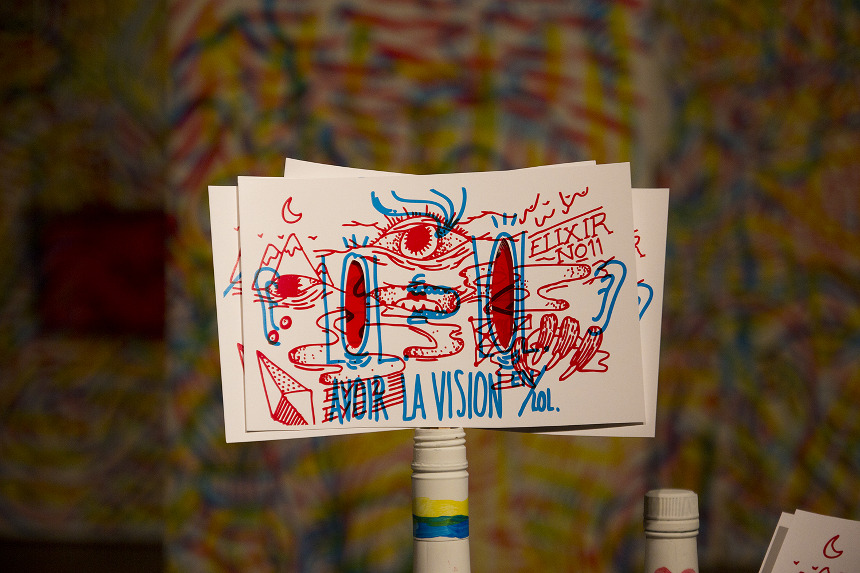 ELIXIR
NO11
AVOIR LA VISION
/LOL.